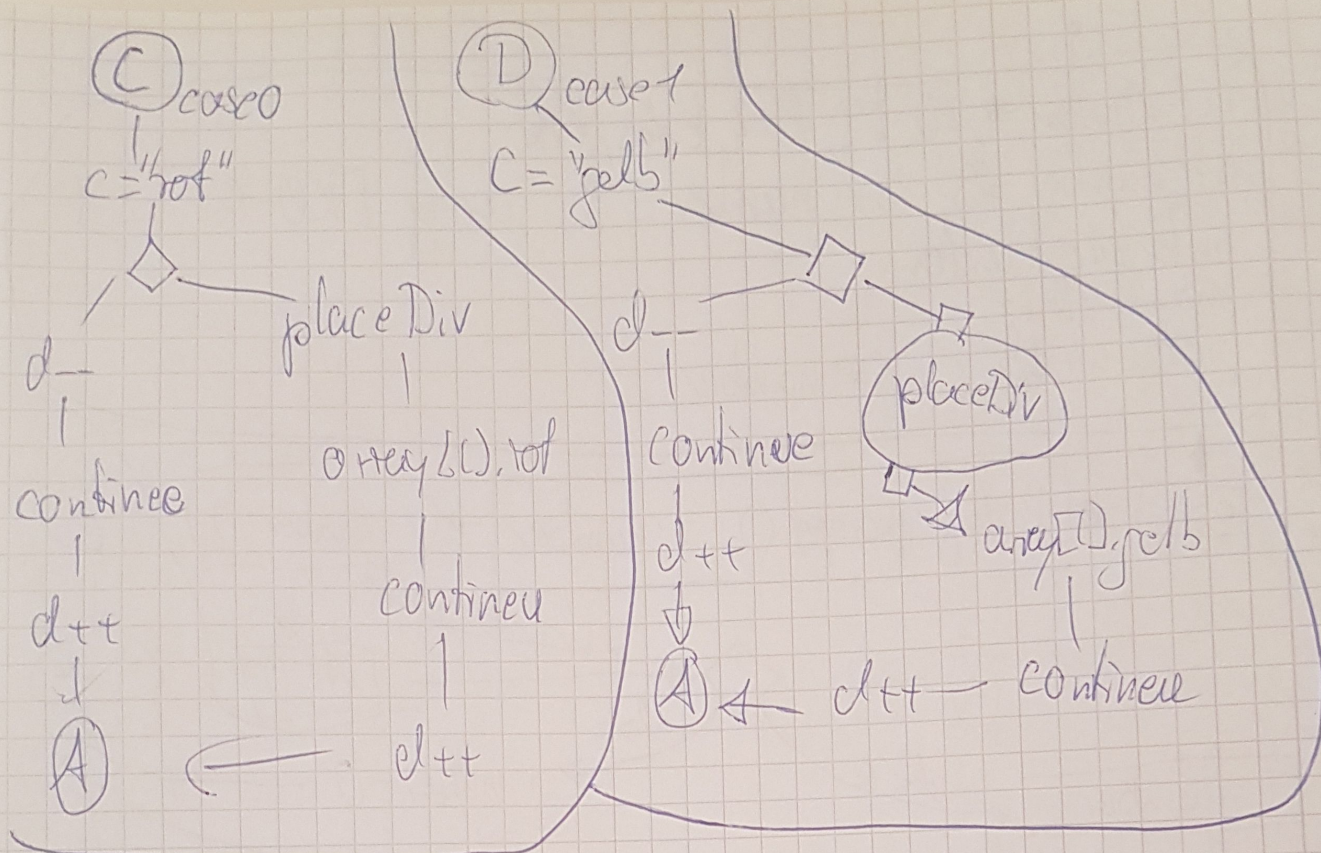 C case 0
c="rot"
d--
continee
d++
A
placeDiv
array[].rot
contineu
d++
D case 1
C = "gelb"
d--
continue
d++
A
placeDiv
array[].gelb
contineu
d++